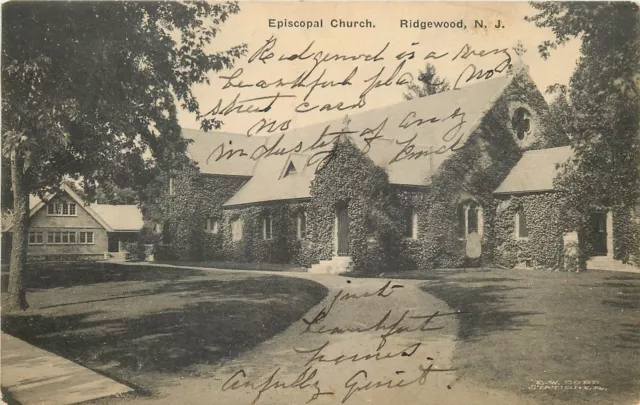 Episcopal Church. Ridgewood, N. J.
Ridgewood is a very
beautiful place no
street cars
no
industry of any
kind
Just
beautiful
homes
awfully quiet
STATIONER.